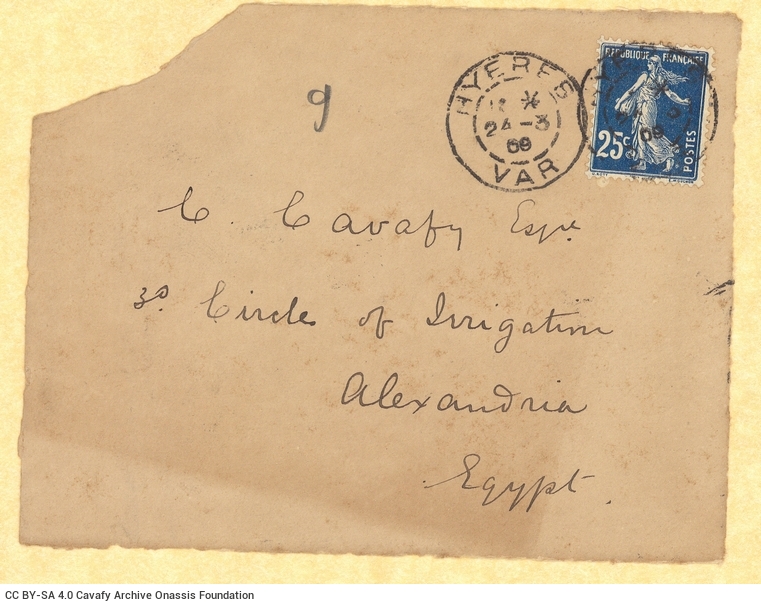 9
HYERES
12 *
24-3
09
VAR
REPUBLIQUE FRANÇAISE
25c
POSTES
C. Cavafy Esqre
3o Circle of Irrigation
Alexandria
Egypt.
CC BY-SA 4.0 Cavafy Archive Onassis Foundation